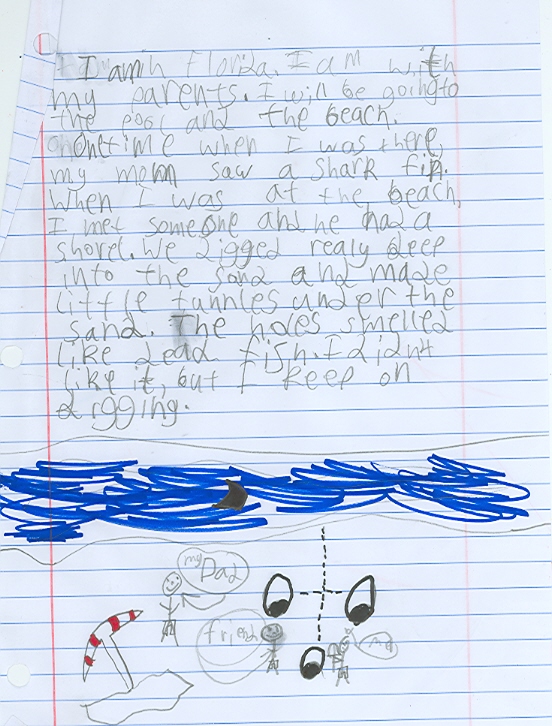 I am in Florida. I am with
my parents. I will be going to
the pool and the beach.
Onetime when I was there,
my mom saw a shark fin.
When I was at the beach,
I met someone and he had a
shovel. We digged realy deep
into the sand and made
little tunnles under the
sand. The holes smelled
like dead fish. I didn't
like it, but I keep on
digging.
my Dad
friend
me